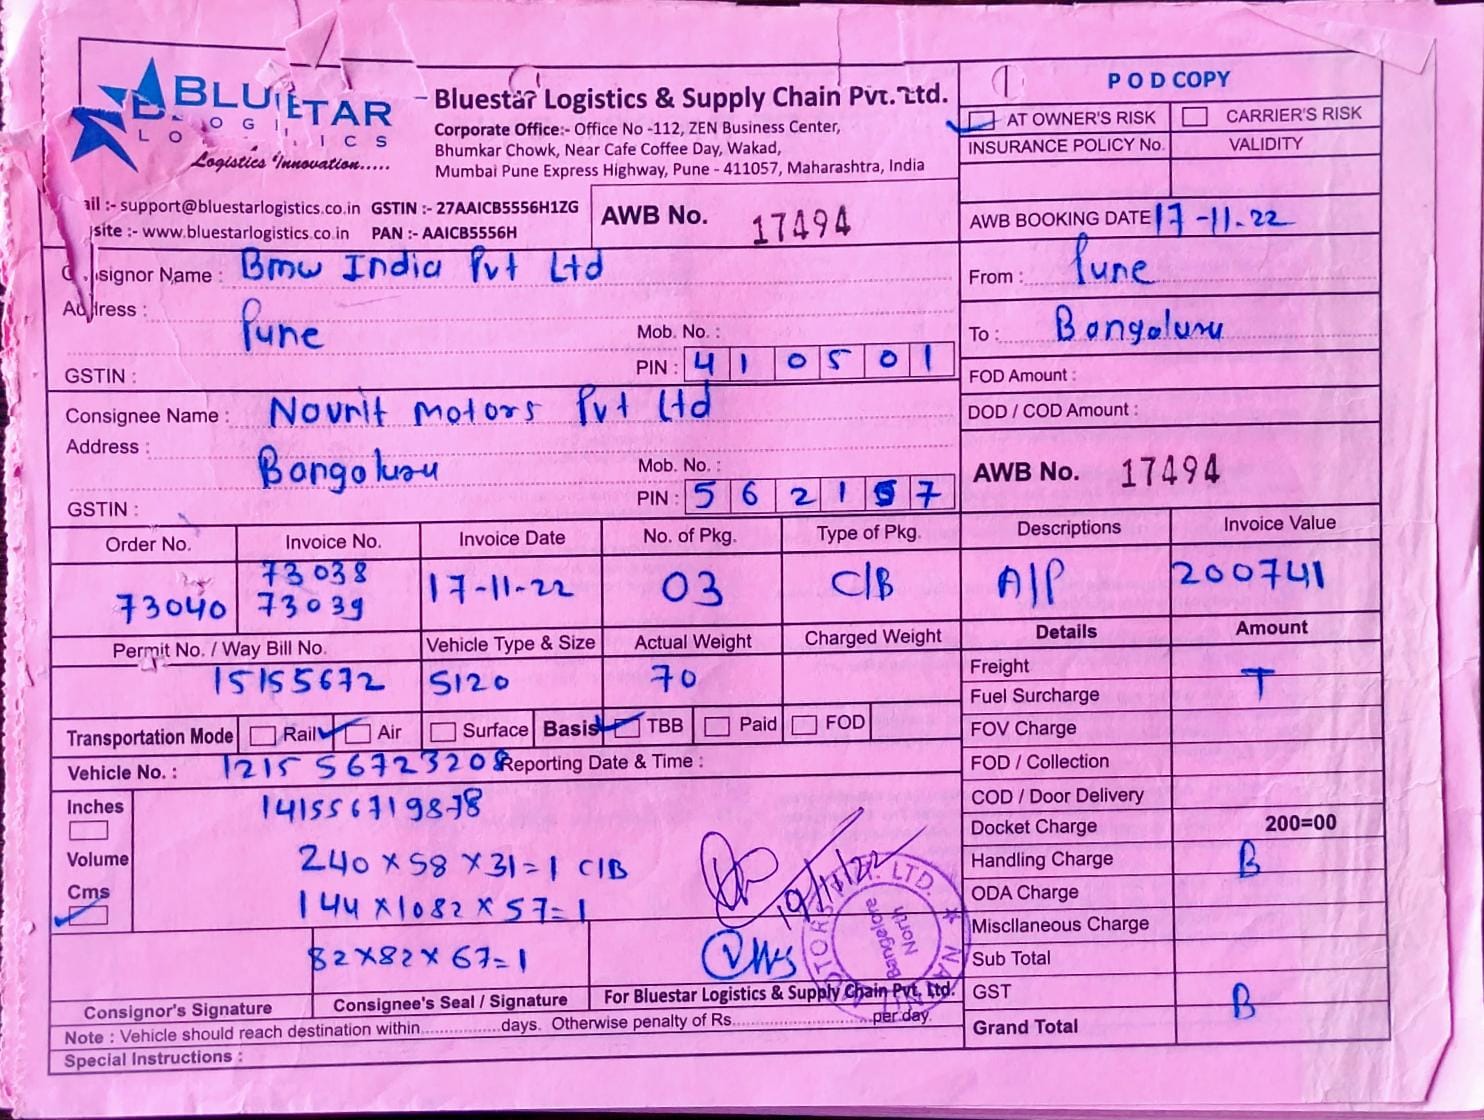 BLUESTAR
LOGISTICS
Logistics Innovation.....
Bluestar Logistics & Supply Chain Pvt. Ltd.
Corporate Office:- Office No -112, ZEN Business Center,
Bhumkar Chowk, Near Cafe Coffee Day, Wakad,
Mumbai Pune Express Highway, Pune - 411057, Maharashtra, India
ail :- support@bluestarlogistics.co.in GSTIN :- 27AAICB5556H1ZG
site :- www.bluestarlogistics.co.in PAN :- AAICB5556H
AWB No. 17494
POD COPY
AT OWNER'S RISK CARRIER'S RISK
INSURANCE POLICY No. VALIDITY
AWB BOOKING DATE 17-11-22
Consignor Name : Bmw India Pvt Ltd
Address :
Pune
Mob. No. :
PIN : 410501
GSTIN :
From : Pune
To : Bangaluru
FOD Amount :
DOD / COD Amount :
Consignee Name : Novnit Motors Pvt Ltd
Address :
Bangaluru
Mob. No. :
PIN : 562157
GSTIN :
AWB No. 17494
Order No. Invoice No. Invoice Date No. of Pkg. Type of Pkg. Descriptions Invoice Value
73038
73040 73039 17-11-22 03 C/B A/P 200741
Permit No. / Way Bill No. Vehicle Type & Size Actual Weight Charged Weight
15155672 5120 70
Transportation Mode Rail Air Surface Basis TBB Paid FOD
Vehicle No. : 1215 56723208 Reporting Date & Time :
Inches
Volume
Cms
141556719878
240 x 58 x 31 = 1 C/B
144 x 1082 x 57 = 1
82 x 82 x 67 = 1
19/11/22
Bangelore
North
Consignor's Signature Consignee's Seal / Signature For Bluestar Logistics & Supply Chain Pvt. Ltd.
Note : Vehicle should reach destination within..................days. Otherwise penalty of Rs................................per day.
Special Instructions :
Details Amount
Freight
T
Fuel Surcharge
FOV Charge
FOD / Collection
COD / Door Delivery
Docket Charge 200=00
Handling Charge B
ODA Charge
Miscllaneous Charge
Sub Total
GST B
Grand Total